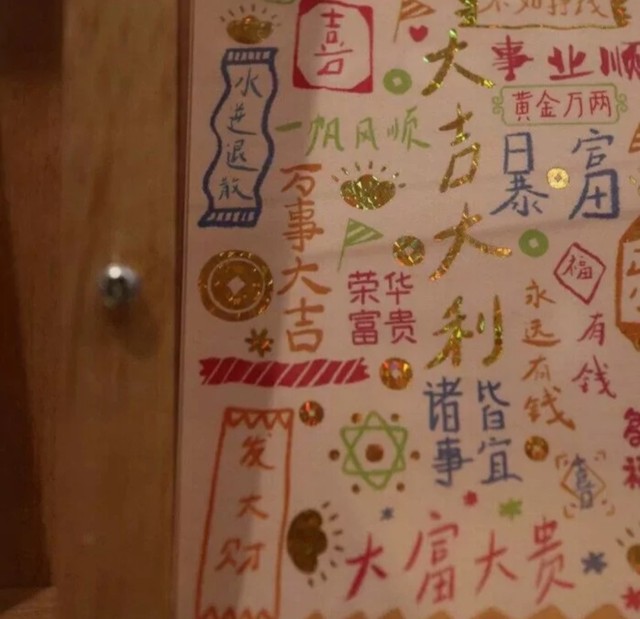 喜
水逆退散
一帆风顺
大吉大利
事业顺
黄金万两
日暴
富
万事大吉
荣华
富贵
福
永远有钱
有钱
诸事
皆宜
发大财
喜
大富大贵
福